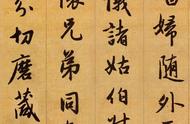 婦随外
儀諸姑伯
懷兄弟同
分切磨箴